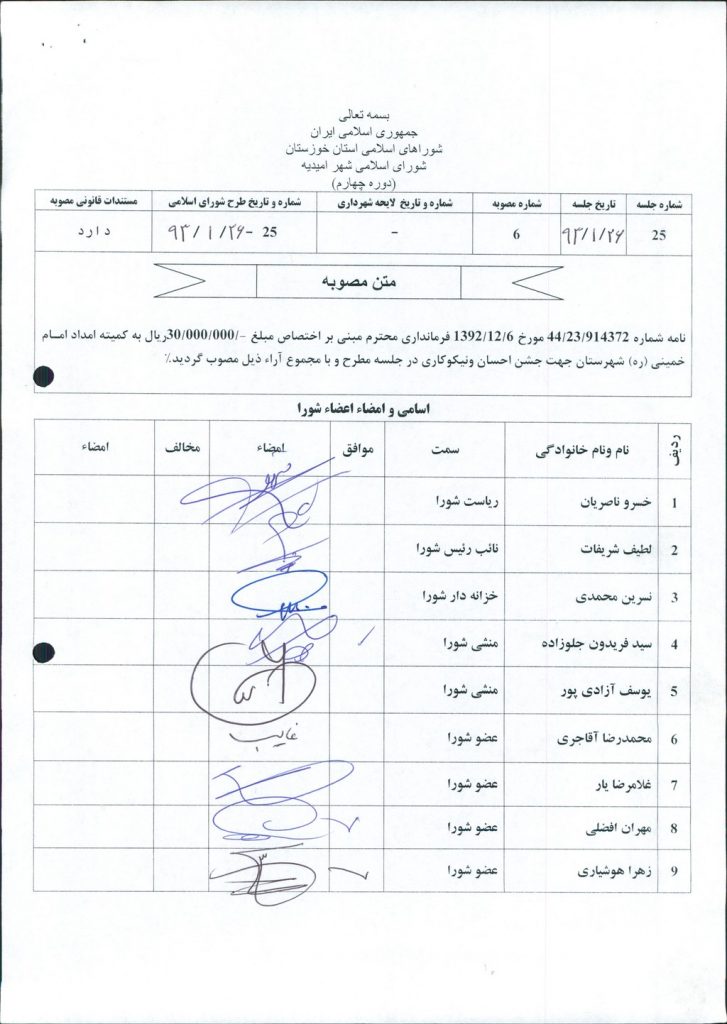 بسمه تعالی
جمهوری اسلامی ایران
شوراهای اسلامی استان خوزستان
شورای اسلامی شهر امیدیه
(دوره چهارم)
شماره جلسه تاریخ جلسه شماره مصوبه شماره و تاریخ لایحه شهرداری شماره و تاریخ طرح شورای اسلامی مستندات قانونی مصوبه
25 ۹۳/۱/۲۶ 6 - 25 - ۹۳/۱/۲۶ دارد
متن مصوبه
نامه شماره 44/23/914372 مورخ 1392/12/6 فرمانداری محترم مبنی بر اختصاص مبلغ -/30/000/000ریال به کمیته امداد امام
خمینی (ره) شهرستان جهت جشن احسان ونیکوکاری در جلسه مطرح و با مجموع آراء ذیل مصوب گردید.٪
اسامی و امضاء اعضاء شورا
ردیف نام ونام خانوادگی سمت موافق امضاء مخالف امضاء
1 خسرو ناصریان ریاست شورا
2 لطیف شریفات نائب رئیس شورا
3 نسرین محمدی خزانه دار شورا
4 سید فریدون جلوزاده منشی شورا
5 یوسف آزادی پور منشی شورا
6 محمدرضا آقاجری عضو شورا غایب
7 غلامرضا یار عضو شورا
8 مهران افضلی عضو شورا
9 زهرا هوشیاری عضو شورا